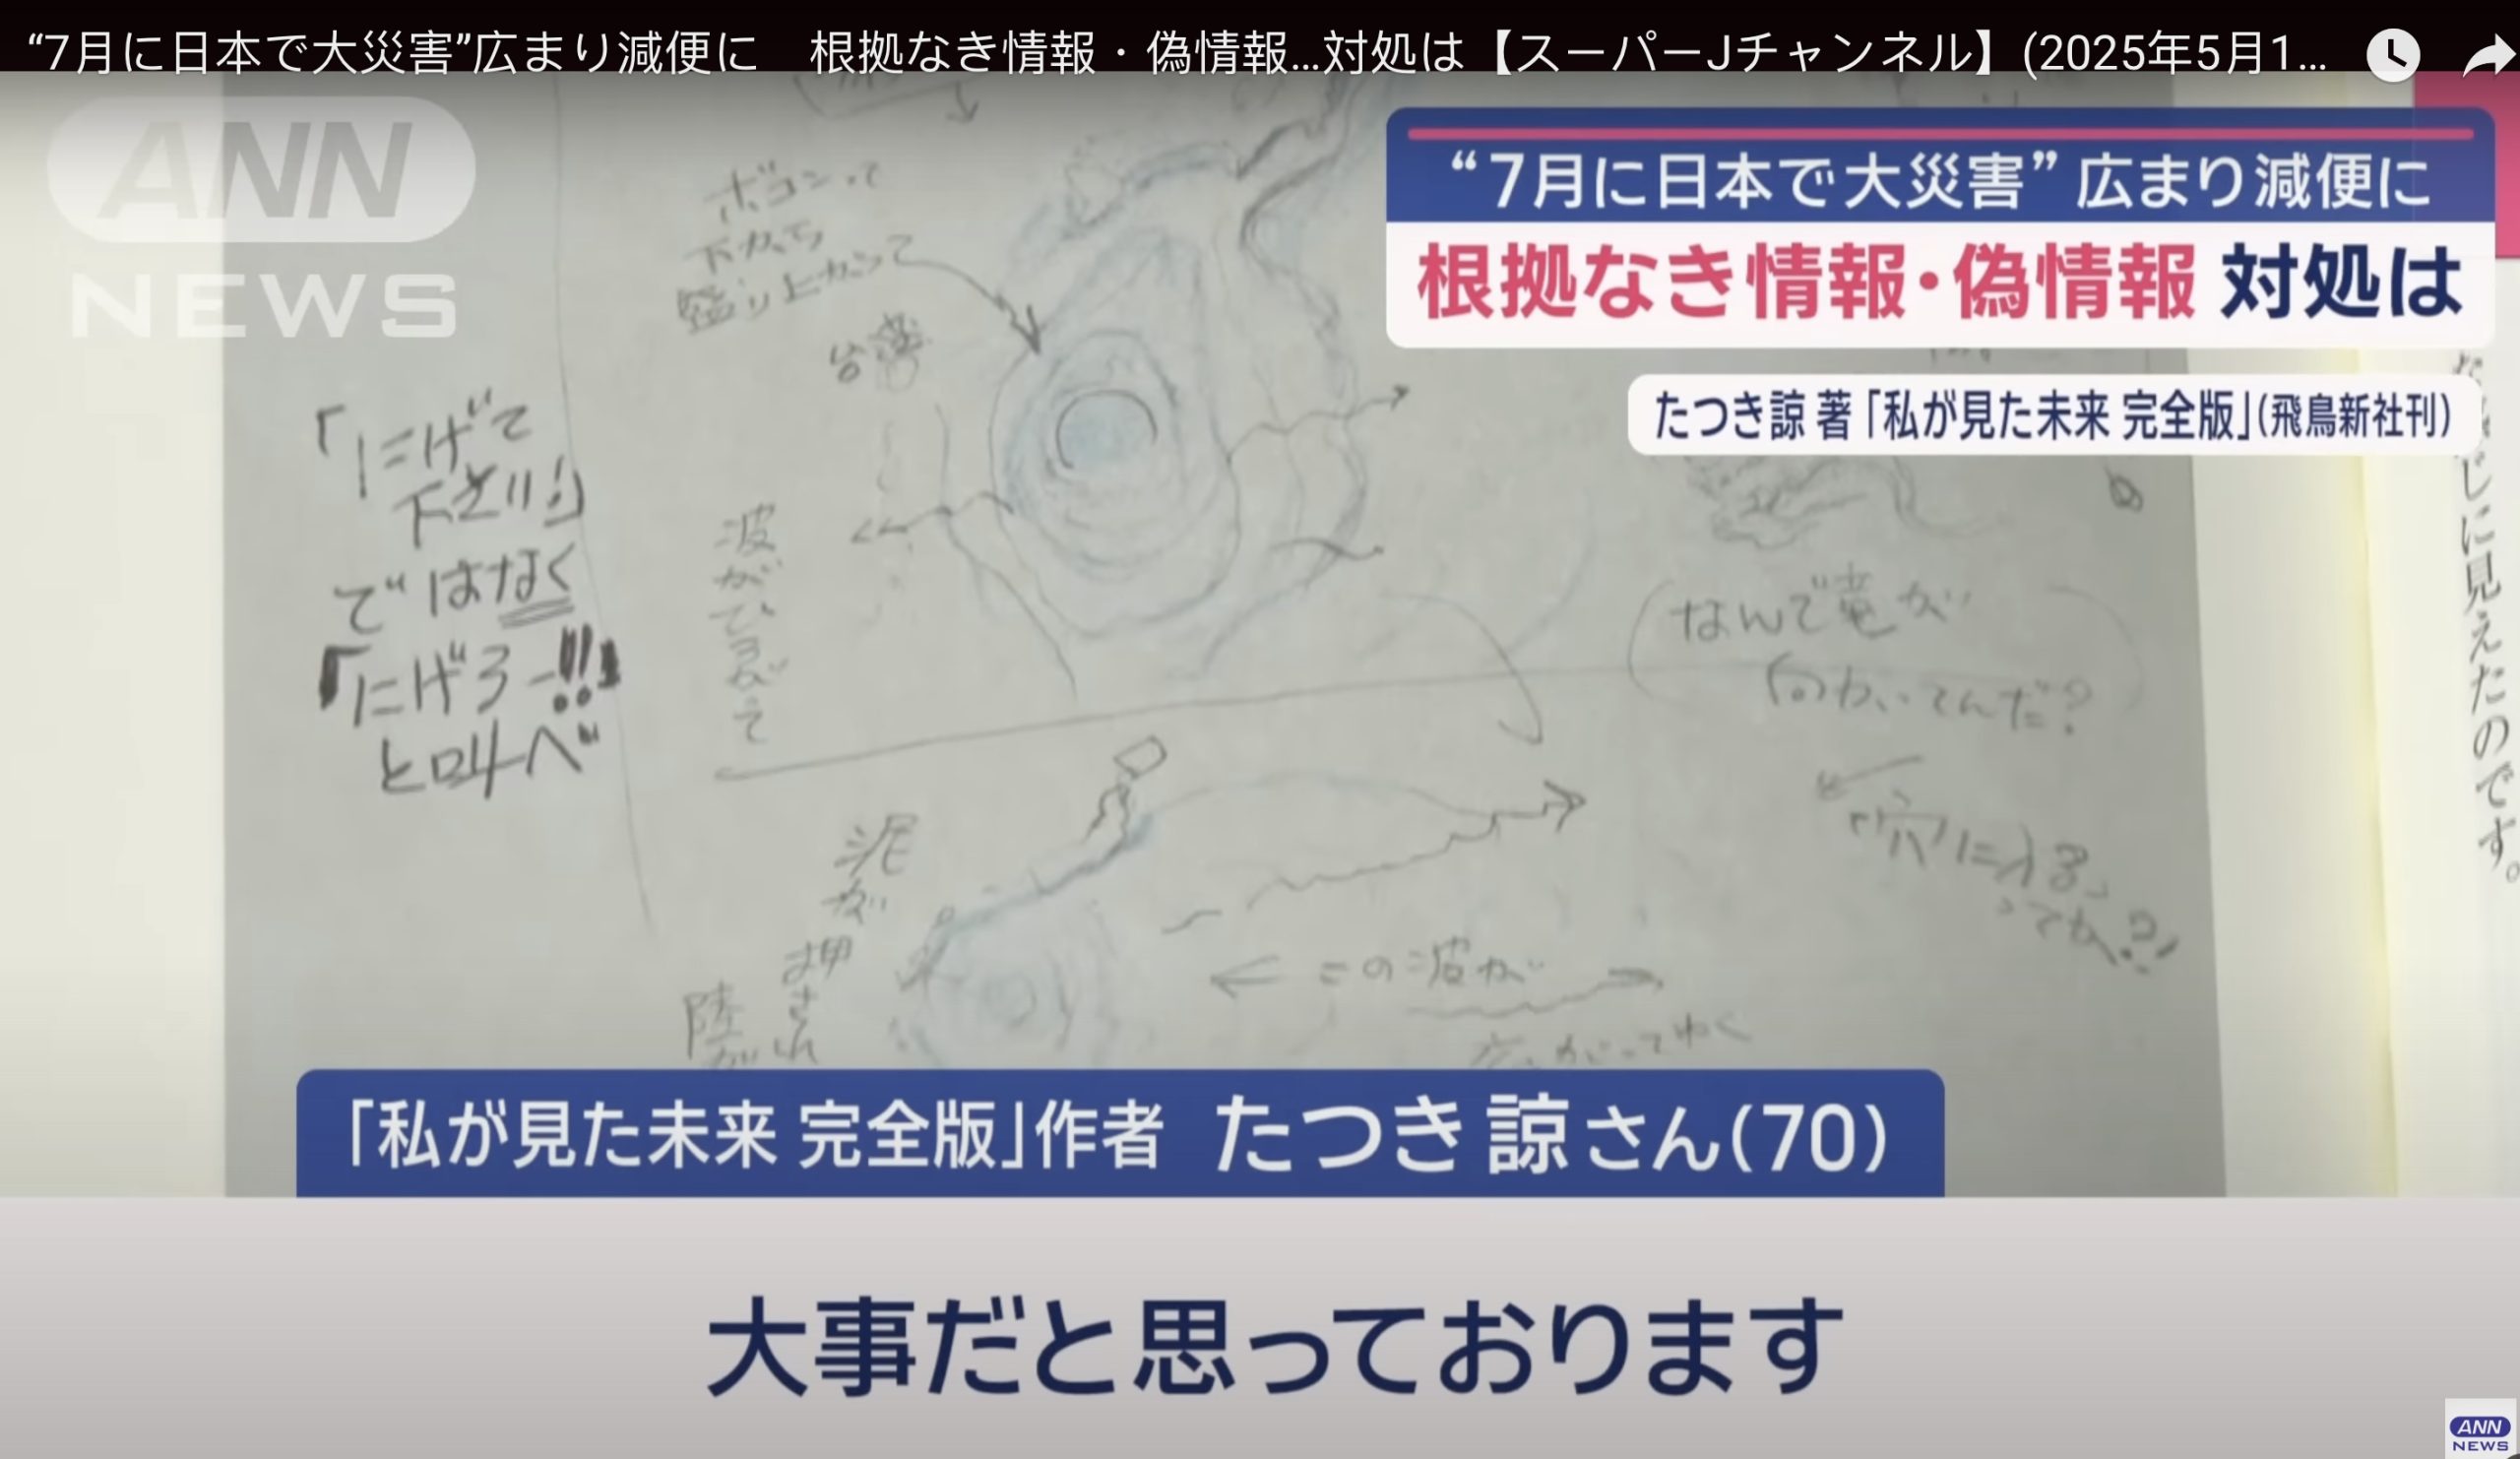 “7月に日本で大災害”広まり減便に　根拠なき情報・偽情報…対処は【スーパーJチャンネル】(2025年5月1...
ANN
NEWS
“7月に日本で大災害”広まり減便に
根拠なき情報・偽情報 対処は
たつき諒 著「私が見た未来 完全版」(飛鳥新社刊)
ボコンって
下から
盛り上がって
台湾
「にげて
下さい!」
ではなく
「にげろー!!」
と叫べ
波が
なんで竜が
向かってんだ?
「穴に入る」
ってか?!
泥が
押され
陸が
この波が
広がってゆく
じに見えたのです。
「私が見た未来 完全版」作者 たつき 諒さん(70)
大事だと思っております
ANN
NEWS